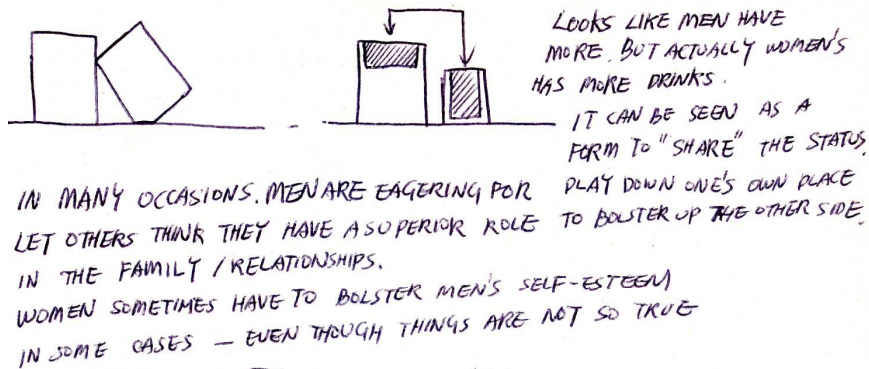 LOOKS LIKE MEN HAVE
MORE. BUT ACTUALLY WOMEN'S
HAS MORE DRINKS.
IT CAN BE SEEN AS A
FORM TO "SHARE" THE STATUS.
PLAY DOWN ONE'S OWN PLACE
TO BOLSTER UP THE OTHER SIDE.
IN MANY OCCASIONS. MEN ARE EAGERING FOR
LET OTHERS THINK THEY HAVE A SUPERIOR ROLE
IN THE FAMILY / RELATIONSHIPS.
WOMEN SOMETIMES HAVE TO BOLSTER MEN'S SELF-ESTEEM
IN SOME CASES — EVEN THOUGH THINGS ARE NOT SO TRUE